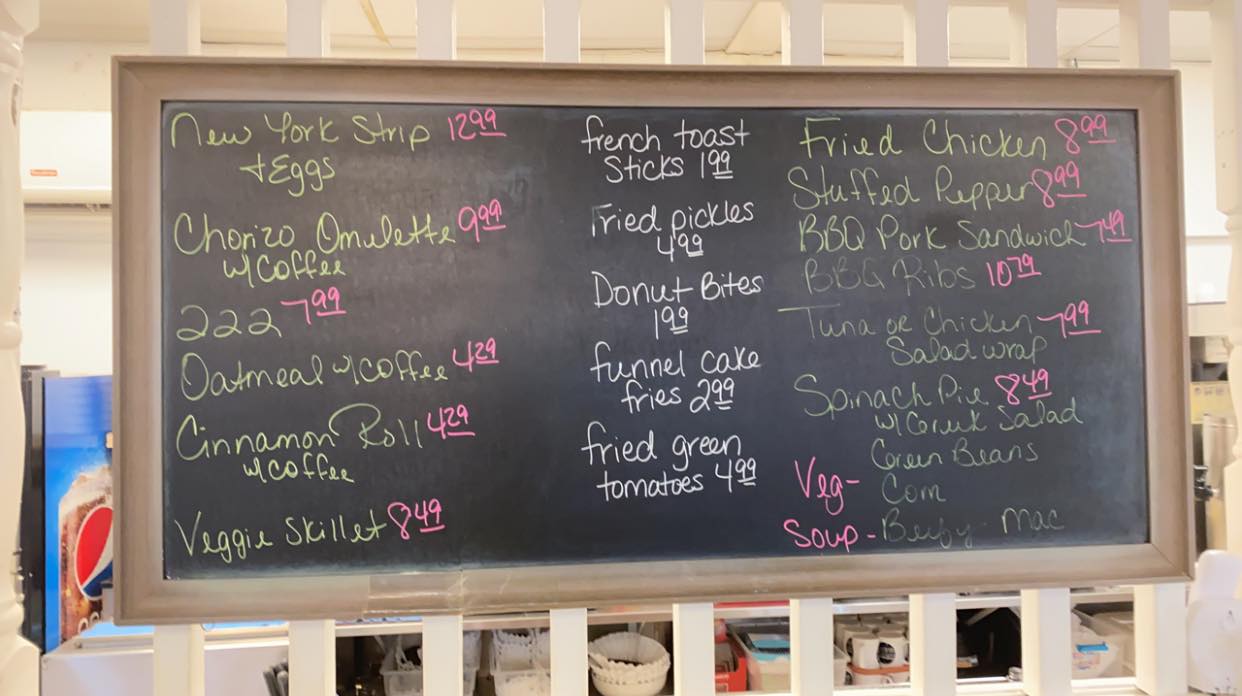 New York Strip 12.99
+ Eggs
Chorizo Omulette 9.99
w/ Coffee
222 7.99
Oatmeal w/ coffee 4.29
Cinnamon Roll 4.29
w/ coffee
Veggie Skillet 8.49
french toast
Sticks 1.99
Fried pickles
4.99
Donut Bites
1.99
funnel cake
fries 2.99
fried green
tomatoes 4.99
Fried Chicken 8.99
Stuffed Pepper 8.99
BBQ Pork Sandwich 7.49
BBQ Ribs 10.79
Tuna or Chicken 7.99
Salad wrap
Spinach Pie 8.49
w/ Greek Salad
Green Beans
Veg- Corn
Soup - Beefy - Mac